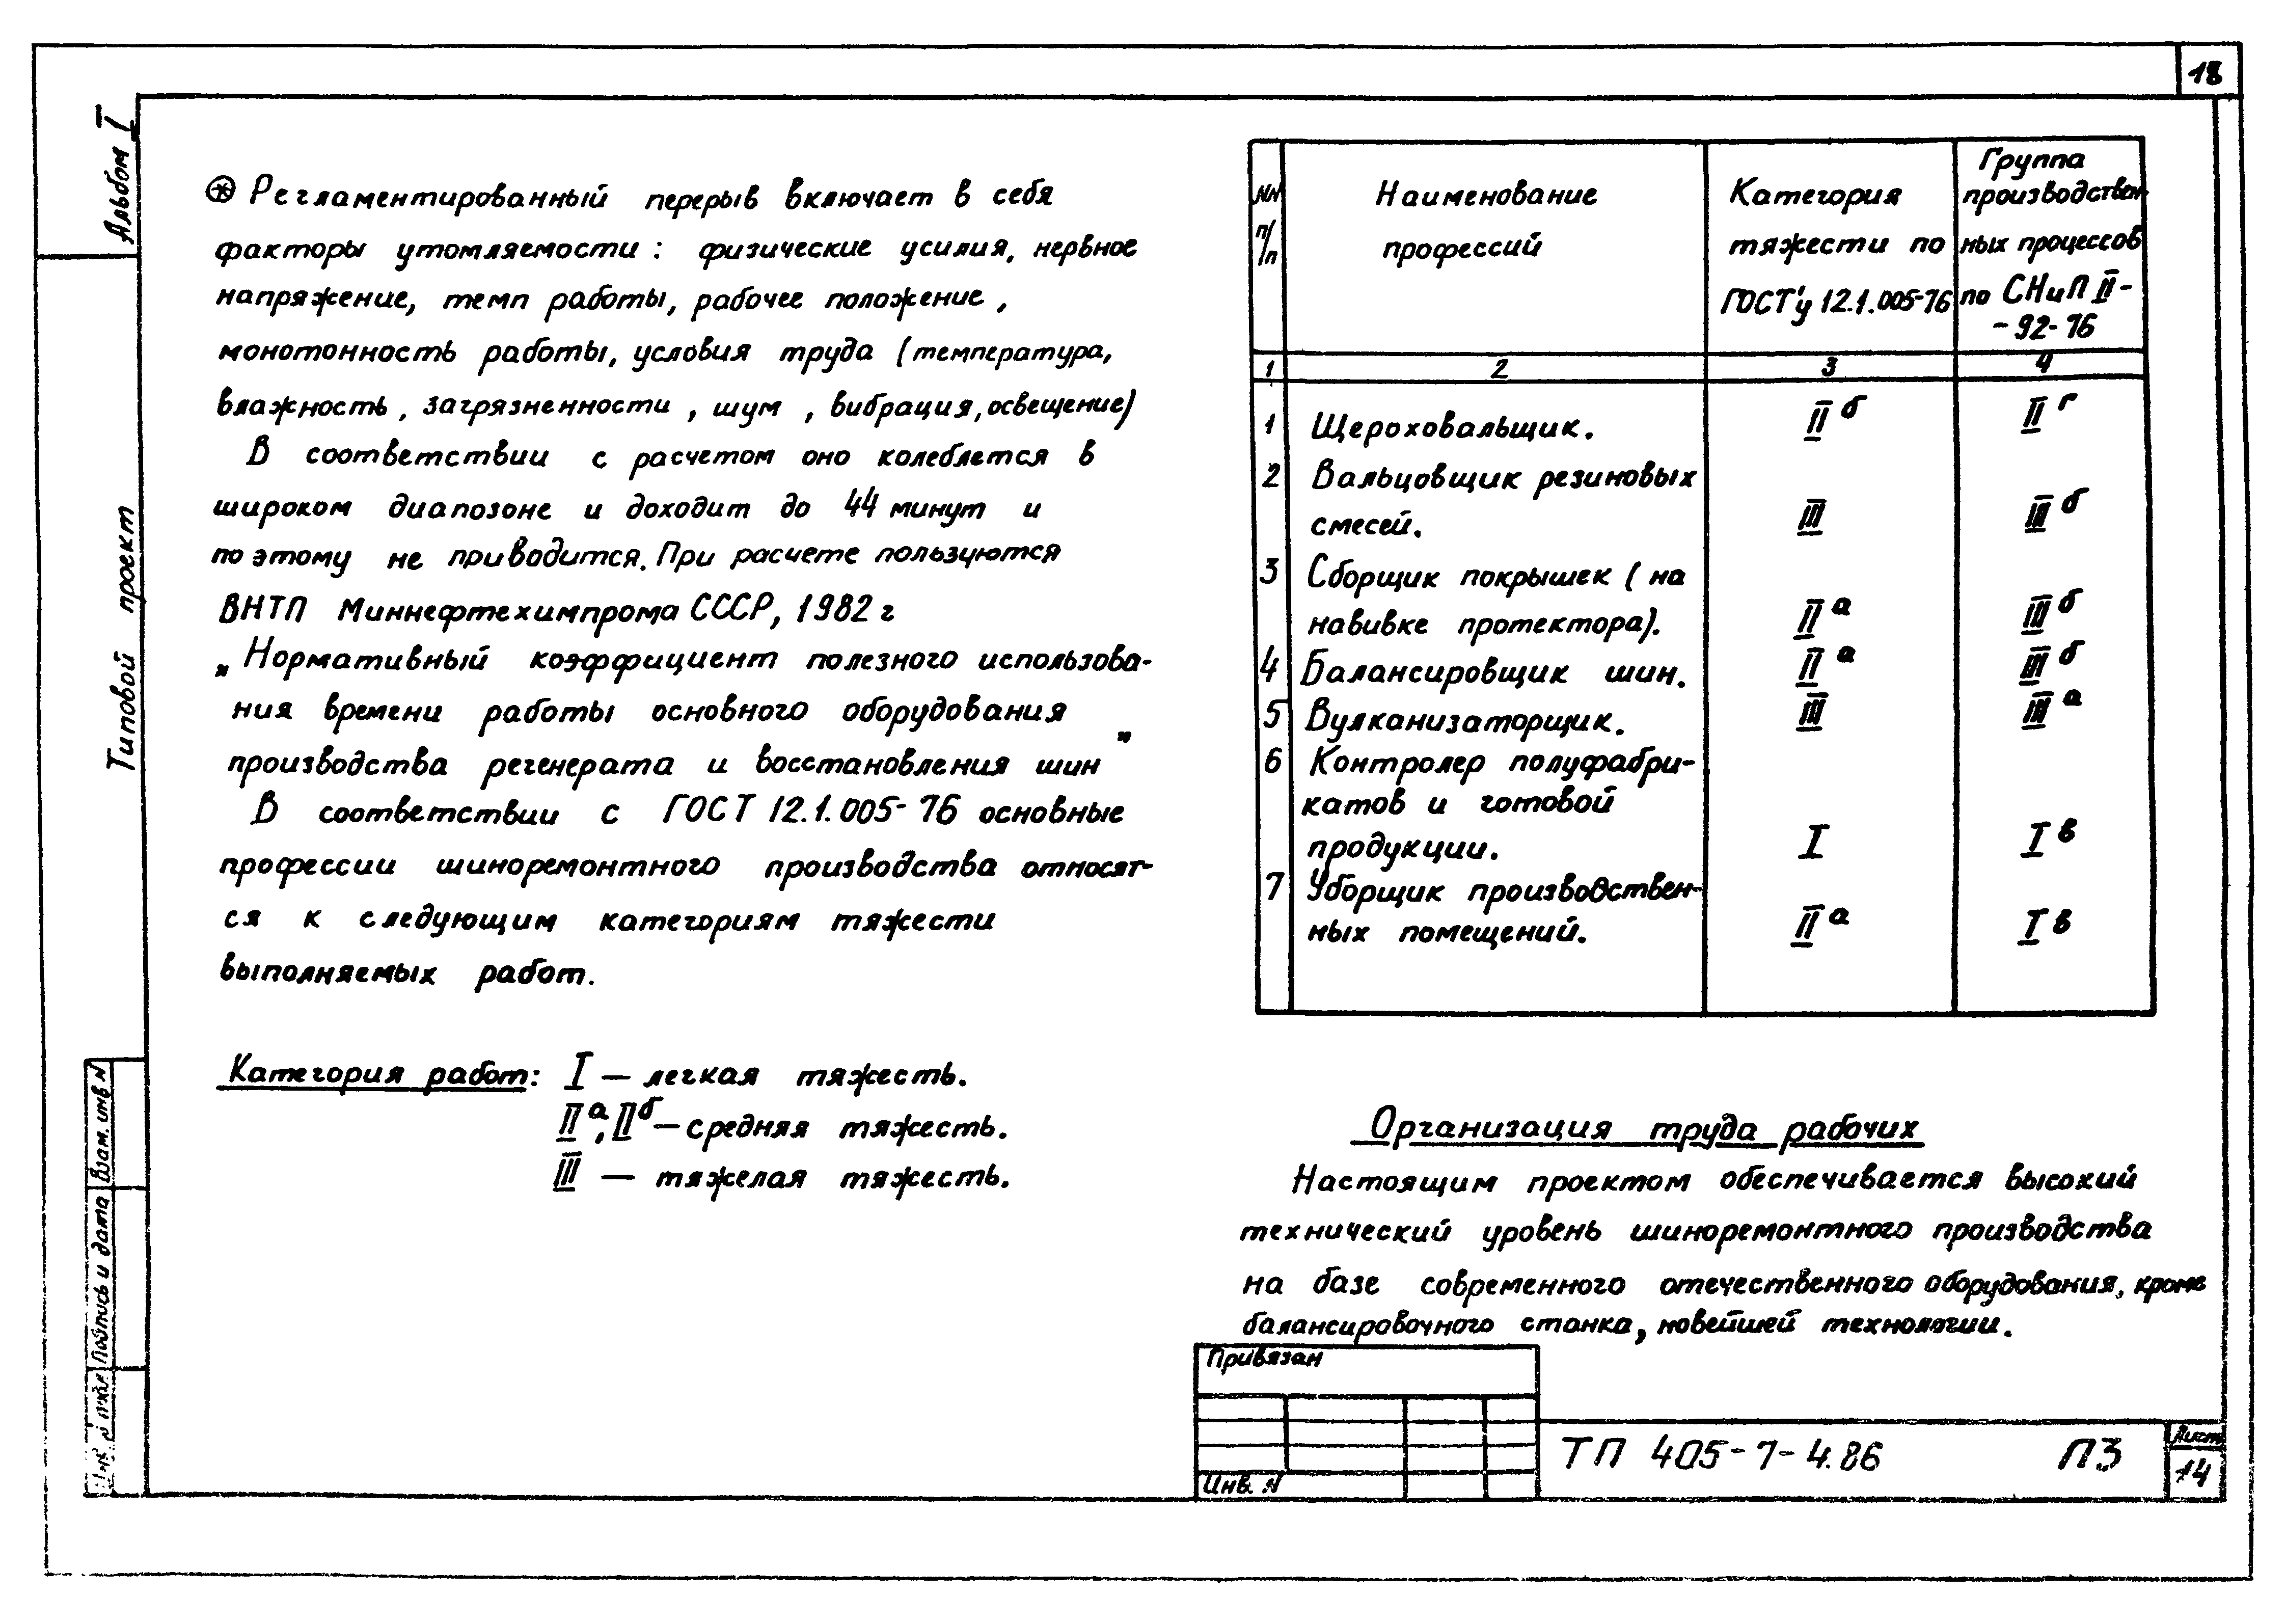 18
Альбом I
Типовой проект
⊛ Регламентированный перерыв включает в себя
факторы утомляемости: физические усилия, нервное
напряжение, темп работы, рабочее положение,
монотонность работы, условия труда (температура,
влажность, загрязненности, шум, вибрация, освещение)
В соответствии с расчетом оно колеблется в
широком диапозоне и доходит до 44 минут и
по этому не приводится. При расчете пользуются
ВНТП Миннефтехимпрома СССР, 1982 г
„Нормативный коэффициент полезного использова-
ния времени работы основного оборудования
производства регенерата и восстановления шин„
В соответствии с ГОСТ 12.1.005-76 основные
профессии шиноремонтного производства относят-
ся к следующим категориям тяжести
выполняемых работ.
Категория работ: I — легкая тяжесть.
II а, II б — средняя тяжесть.
III — тяжелая тяжесть.
NN п/п
Наименование профессий
Категория тяжести по ГОСТ'у 12.1.005-76
Группа производствен ных процессов по СНиП II- -92-76
1 2 3 4
1 Щероховальщик. II б II г
2 Вальцовщик резиновых
смесей. III III б
3 Сборщик покрышек (на
навивке протектора). II а III б
4 Балансировщик шин. II а III б
5 Вулканизаторщик. III III а
6 Контролер полуфабри-
катов и готовой
продукции. I I в
7 Уборщик производствен-
ных помещений. II а I в
Организация труда рабочих
Настоящим проектом обеспечивается высокий
технический уровень шиноремонтного производства
на базе современного отечественного оборудования, кроме
балансировочного станка, новейшей технологии.
Привязан
Инв. N
ТП 405-7-4.86 ПЗ
Лист
14
Взам. инв N
Подпись и дата
Инв N подл